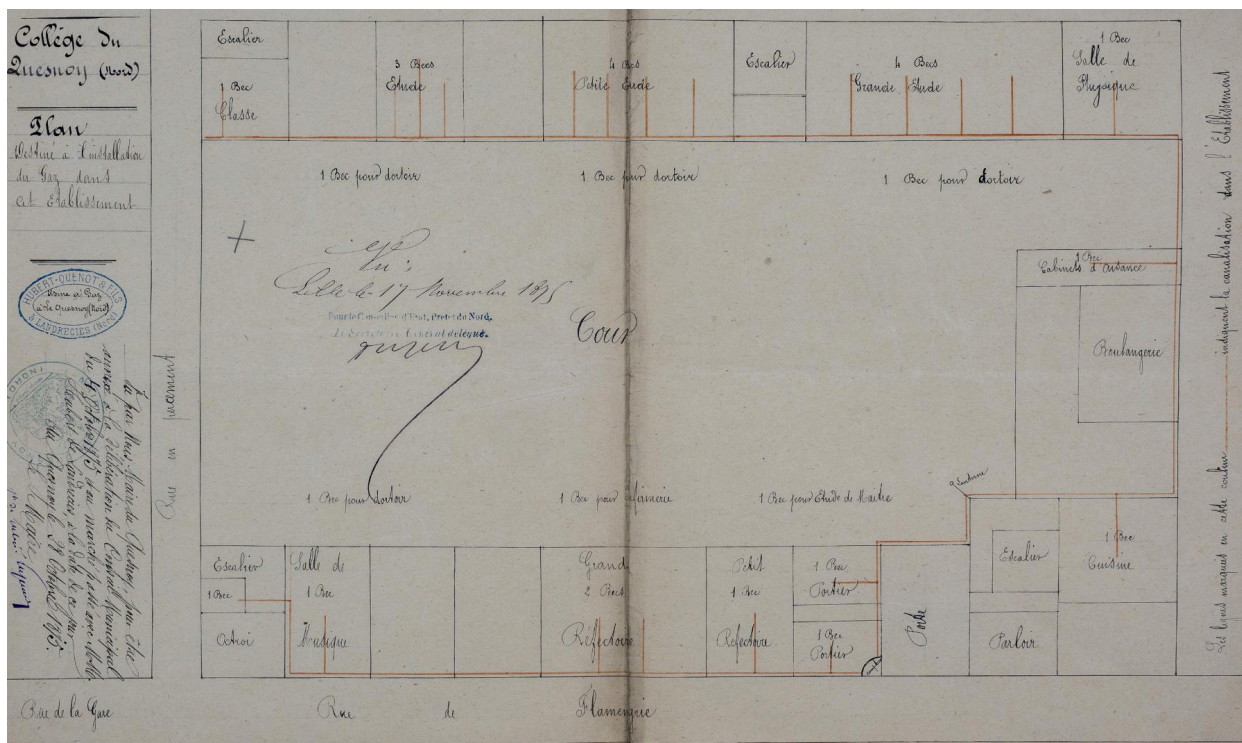 Collége du
Quesnoy (Nord)
Plan
Destiné à l'installation
du Gaz dans
cet Etablissement
HUBERT-QUENOT & FILS
Usine à Gaz
à Le Quesnoy (Nord)
& LANDRECIES (Nord)
Vu par Nous, Maire du Quesnoy, pour être
annexé à la délibération du Conseil Municipal
Le Maire
Rue en parement
Escalier
1 Bec
Classe
3 Becs
Etude
4 Becs
Petite Etude
Escalier
4 Becs
Grande Etude
1 Bec
Salle de
Physique
1 Bec pour dortoir
1 Bec pour dortoir
1 Bec pour dortoir
Vu:
Lille le 17 Novembre 1875
Pour le Conseiller d'Etat, Préfet du Nord,
Le Secrétaire Général délégué.
Cour
1 Bec
Cabinets d'aisance
Boulangerie
1 Bec pour dortoir
1 Bec pour infirmerie
1 Bec pour Etude de Maître
Escalier
1 Bec
Octroi
Salle de
1 Bec
Musique
Grand
2 Becs
Réfectoire
Petit
1 Bec
Réfectoire
1 Bec
Portier
1 Bec
Portier
Porte
Escalier
Parloir
1 Bec
Cuisine
Les lignes marquées en cette couleur indiquent la canalisation dans l'Etablissement
Rue de la Gare
Rue de Flamengrie